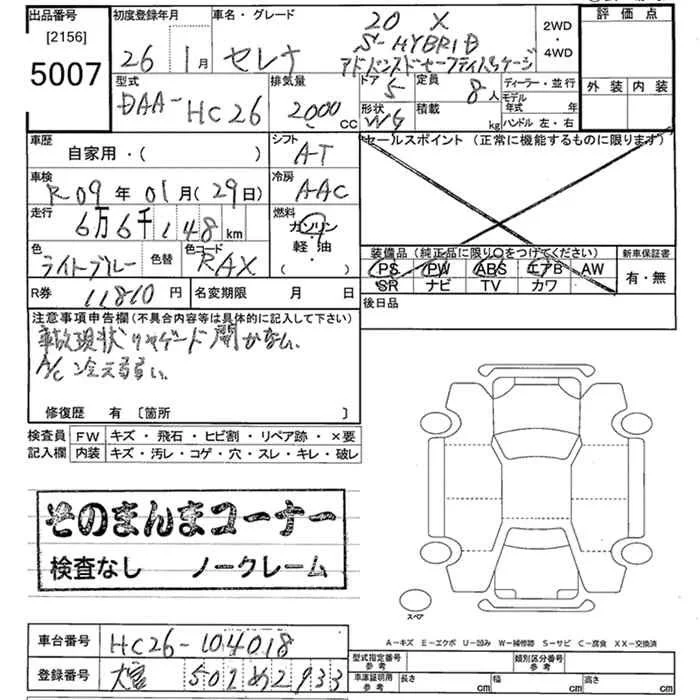 出品番号 初度登録年月 車名・グレード 20 X 2WD・4WD 評価点
[2156] 26 1月 セレナ S-HYBRID
5007 アドバンスドセーフティパッケージ 外装 内装
型式 DAA-HC26 排気量 2000 CC ドア 5 定員 8人 ディーラー・並行
形状 WG 積載 kg モデル年式 年
ハンドル 左・右
車歴 自家用・( ) シフト A-T セールスポイント (正常に機能するものに限ります)
車検 R 09年 01月 (29日) 冷房 AAC
走行 6万6千148 km 燃料 ガソリン 軽・油 ( )
色 ライトブルー 色替 色コード RAX
装備品 (純正品に限り○をつけてください) 新車保証書
PS PW ABS エアB AW 有・無
SR ナビ TV カワ
R券 11810円 名変期限 月 日 後日品
注意事項申告欄 (不具合内容等は具体的に記入して下さい)
事故現状 リヤゲード開かない
A/C 冷え弱い。
修復歴 有 〔箇所 〕
検査員 FW キズ・飛石・ヒビ割・リペア跡・×要
記入欄 内装 キズ・汚レ・コゲ・穴・スレ・キレ・破レ
そのまんまコーナー
検査なし ノークレーム
スペア
A-キズ E-エクボ U-凹み W-補修跡 S-サビ C-腐食 XX-交換済
車台番号 HC26-104018
型式指定番号 参考 類別区分番号 参考
登録番号 502 め 2933
車庫証明用 参考 長さ cm 幅 cm 高さ cm